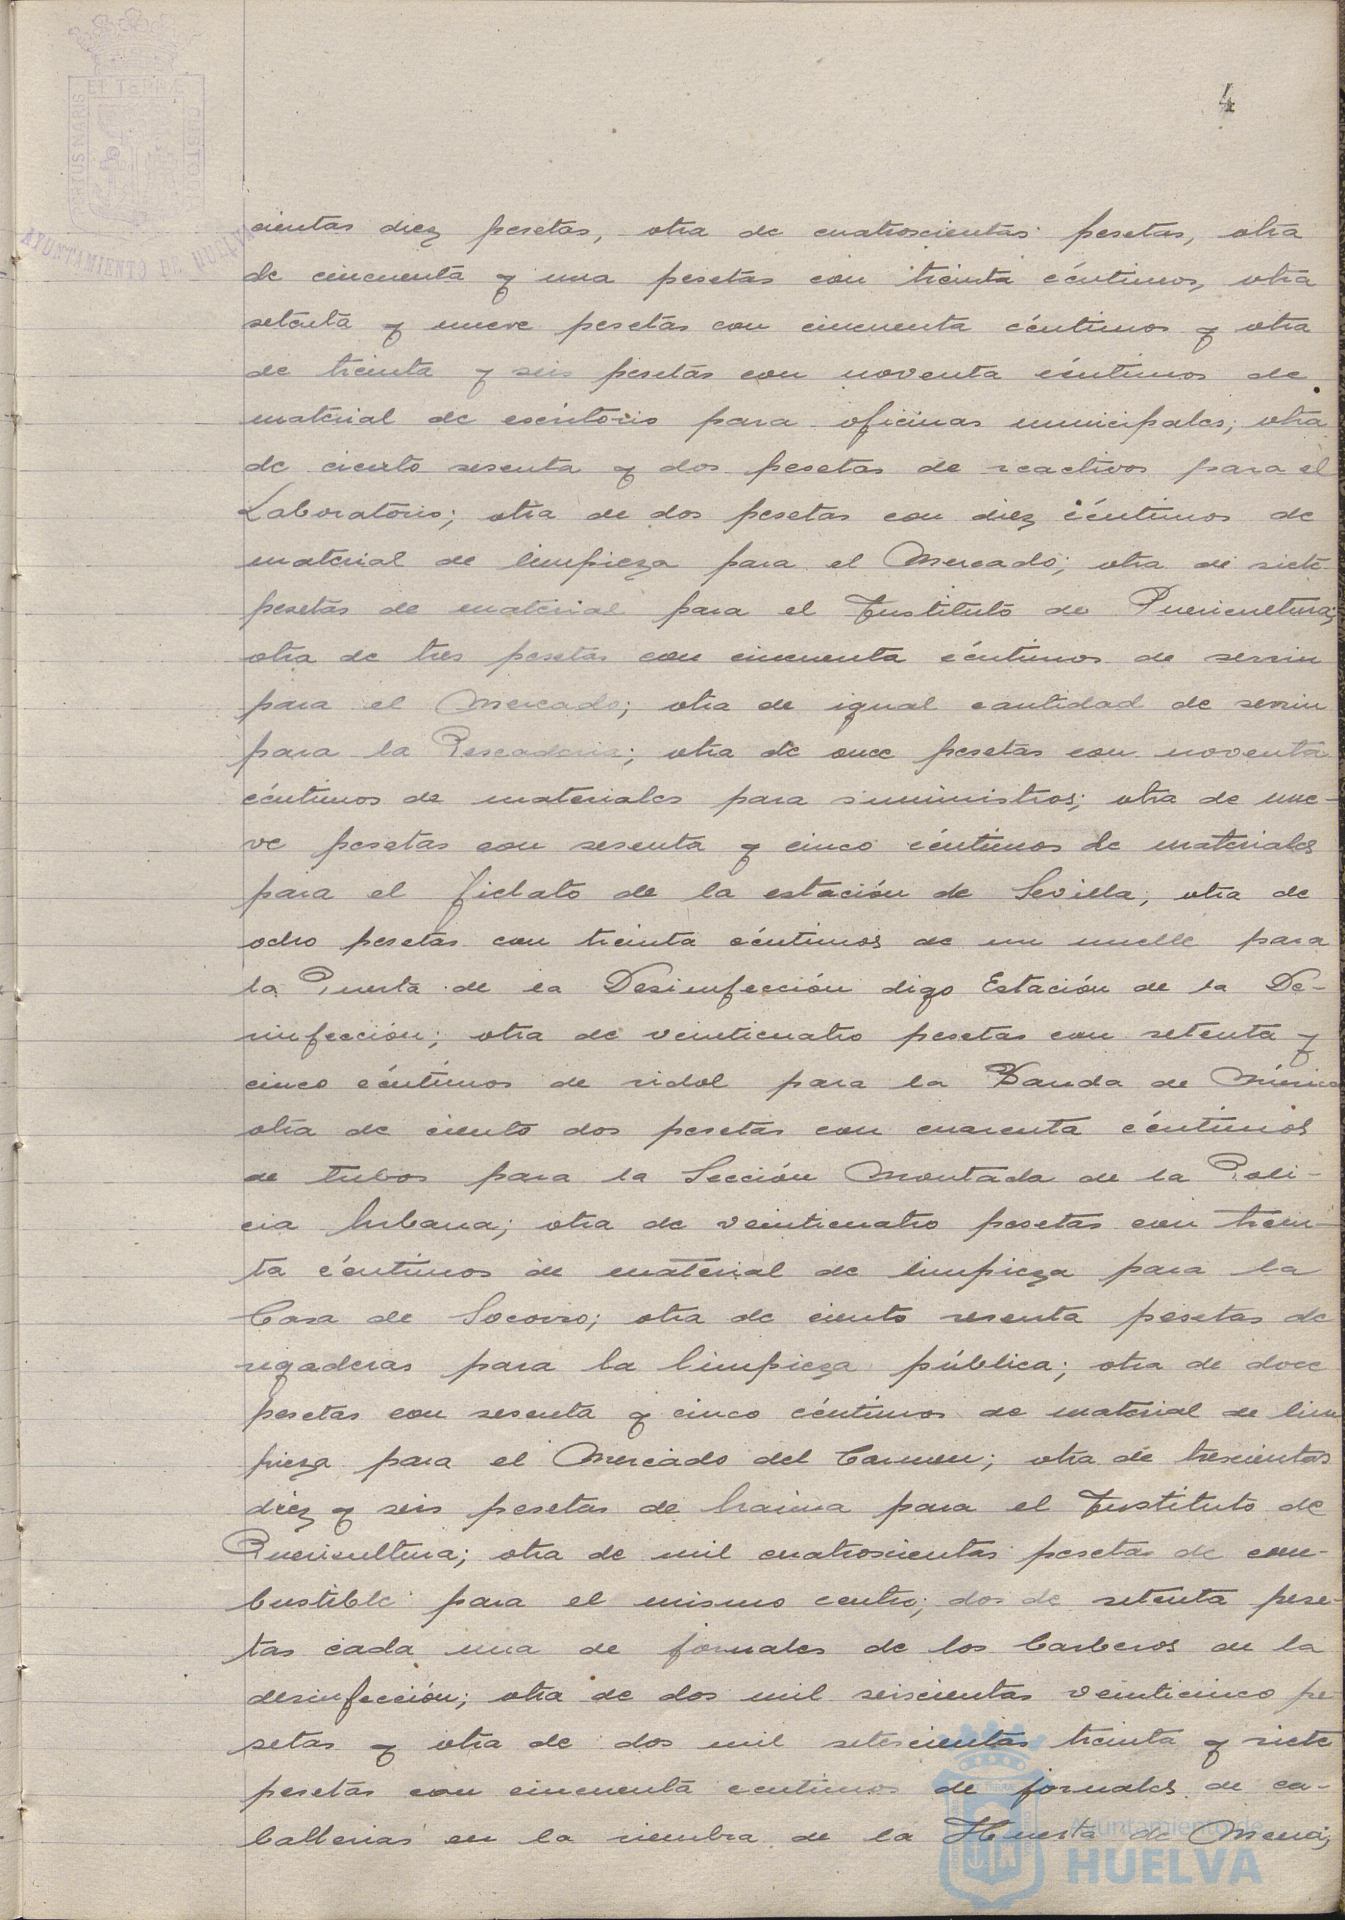 4
PORTUS MARIS ET TERRAE CUSTODIA
AYUNTAMIENTO DE HUELVA
cientas diez pesetas, otra de cuatroscientas pesetas, otra
de cincuenta y una pesetas con treinta céntimos, otra
setenta y nueve pesetas con cincuenta céntimos y otra
de treinta y seis pesetas con noventa céntimos de
material de escritorio para oficinas municipales; otra
de ciento sesenta y dos pesetas de reactivos para el
Laboratorio; otra de dos pesetas con diez céntimos de
material de limpieza para el Mercado; otra de siete
pesetas de material para el Instituto de Puericultura;
otra de tres pesetas con cincuenta céntimos de serrin
para el Mercado; otra de igual cantidad de serrin
para la Pescaderia; otra de once pesetas con noventa
céntimos de materiales para suministros; otra de nue-
ve pesetas con sesenta y cinco céntimos de materiales
para el fielato de la estación de Sevilla; otra de
ocho pesetas con treinta céntimos de un muelle para
la Puerta de la Desinfección digo Estación de la De-
sinfección; otra de veinticuatro pesetas con setenta y
cinco céntimos de sidol para la Banda de Música
otra de ciento dos pesetas con cuarenta céntimos
de tubos para la Sección Montada de la Poli-
cia Urbana; otra de veinticuatro pesetas con trein-
ta céntimos de material de limpieza para la
Casa de Socorro; otra de ciento sesenta pesetas de
regaderas para la limpieza pública; otra de doce
pesetas con sesenta y cinco céntimos de material de lim
pieza para el Mercado del Carmen; otra de trescientas
diez y seis pesetas de harina para el Instituto de
Puericultura; otra de mil cuatroscientas pesetas de com-
bustible para el mismo centro; dos de setenta pese-
tas cada una de jornales de los barberos en la
desinfección; otra de dos mil seiscientas veinticinco pe-
setas y otra de dos mil setescientas treinta y siete
pesetas con cincuenta centimos de jornales de ca-
ballerias en la siembra de la Huerta de Mena;
Ayuntamiento de
HUELVA